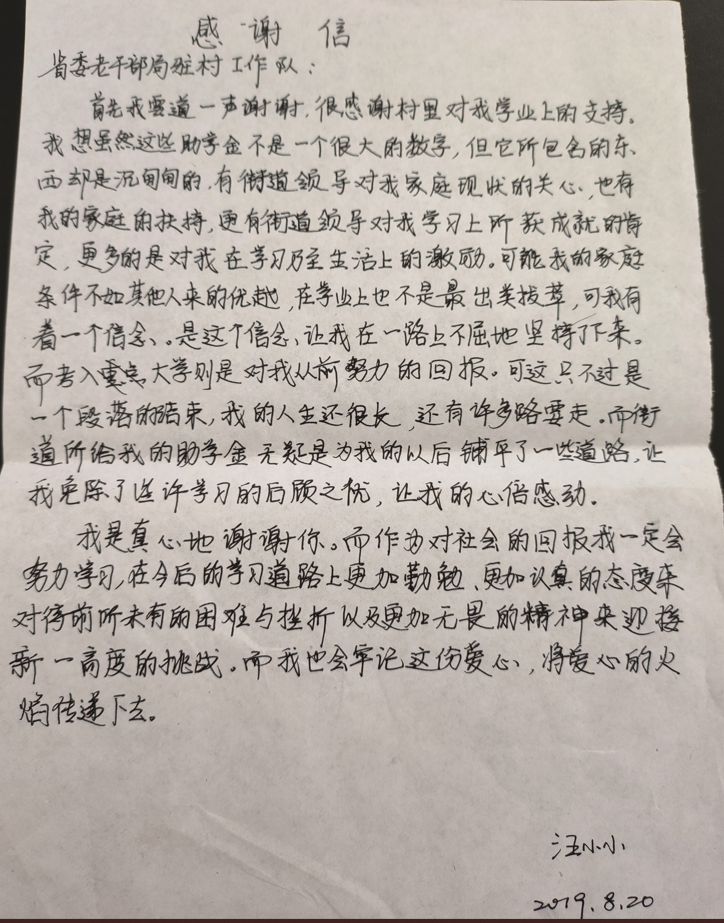 感谢信
省委老干部局驻村工作队：
首先我要道一声谢谢，很感谢村里对我学业上的支持。
我想虽然这些助学金不是一个很大的数字，但它所包含的东
西却是沉甸甸的，有街道领导对我家庭现状的关心，也有
我的家庭的扶持，更有街道领导对我学习上所获成就的肯
定，更多的是对我在学习乃至生活上的激励。可能我的家庭
条件不如其他人来的优越，在学业上也不是最出类拔萃，可我有
着一个信念、。是这个信念、让我在一路上不屈地坚持了下来。
而考入重点大学则是对我从前努力的回报。可这只不过是
一个段落的结束，我的人生还很长，还有许多路要走。而街
道所给我的助学金无疑是为我的以后铺平了一些道路，让
我免除了些许学习的后顾之忧，让我的心倍感动。
我是真心地谢谢你。而作为对社会的回报我一定会
努力学习，在今后的学习道路上更加勤勉、更加认真的态度来
对待前所未有的困难与挫折以及更加无畏的精神来迎接
新一高度的挑战。而我也会牢记这份爱心，将爱心的火
焰传递下去。
汪小小
2019.8.20